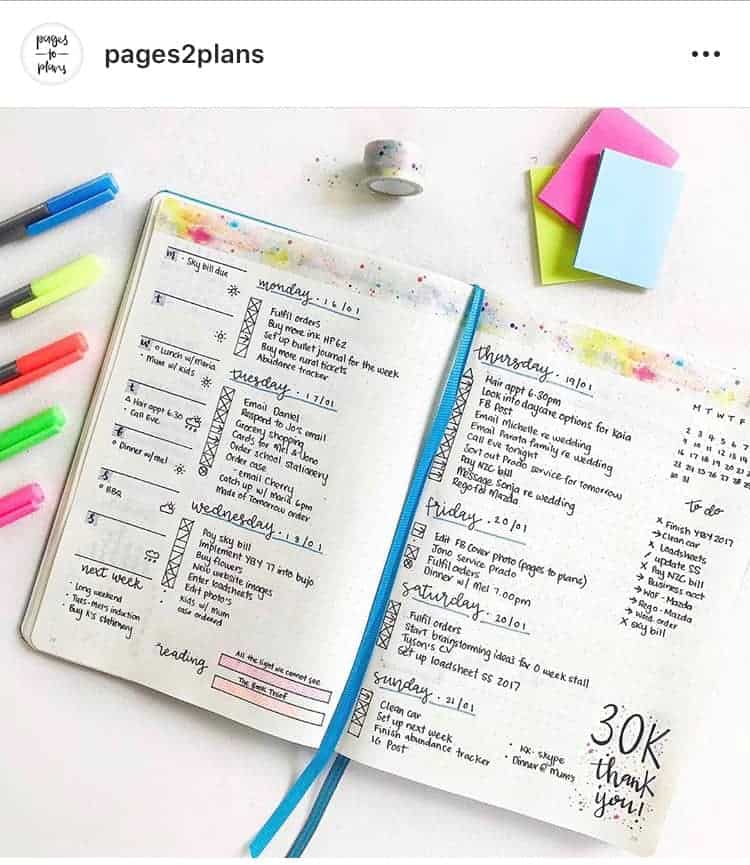 pages
to
plans
pages2plans
m
• Sky bill due
t
w
o Lunch w/ Maria
• Mum w/ kids
t
△ Hair appt 6.30
• Call Eve
f
o Dinner w/ Mel
s
o BBQ
s
next week
• Long weekend
• Tues-Mel's induction
• Buy K's stationery
monday . 16/01
Fulfil orders
Buy more ink HP62
Set up bullet journal for the week
Buy more rural tickets
Abundance tracker
tuesday . 17/01
Email Daniel
Respond to Jo's email
Grocery shopping
Cards for Mel & Jono
Order school stationery
Order case
- email Cherry
Catch up w/ Maria 6pm
Made of Tomorrow order
wednesday . 18/01
Pay sky bill
Implement YBY 17 into bujo
Buy flowers
New website images
Enter loadsheets
Edit photo's
Kids w/ mum
case ordered
reading
All the light we cannot see
The Book Thief
thursday . 19/01
Hair appt 6.30pm
Look into daycare options for Kaia
FB Post
Email Michelle re wedding
Email Parata family re wedding
Call Eve tonight
Sort out Prado service for tomorrow
Pay NZC bill
Message Sonja re wedding
Rego for Mazda
friday . 20/01
Edit FB cover photo (pages to plans)
Jono service Prado
Fulfil orders
Dinner w/ Mel 7.00pm
saturday . 20/01
Fulfil orders
Start brainstorming ideas for O week stall
Tyson's CV
Set up loadsheet SS 2017
sunday . 21/01
Clean car
Set up next week
Finish abundance tracker
IG Post
• KK- Skype
• Dinner @ Mum's
M T W T F
2 3 4 5 6 7
9 10 11 12 13 14
16 17 18 19 20 21
23 24 25 26 27 28
30 31
To do
x Finish YBY 2017
→ Clean car
Loadsheets
update SS
x Pay NZC bill
→ Business acct
→ WOF - Mazda
→ Rego - Mazda
→ Wed. order
x Sky bill
30K
thank
you!